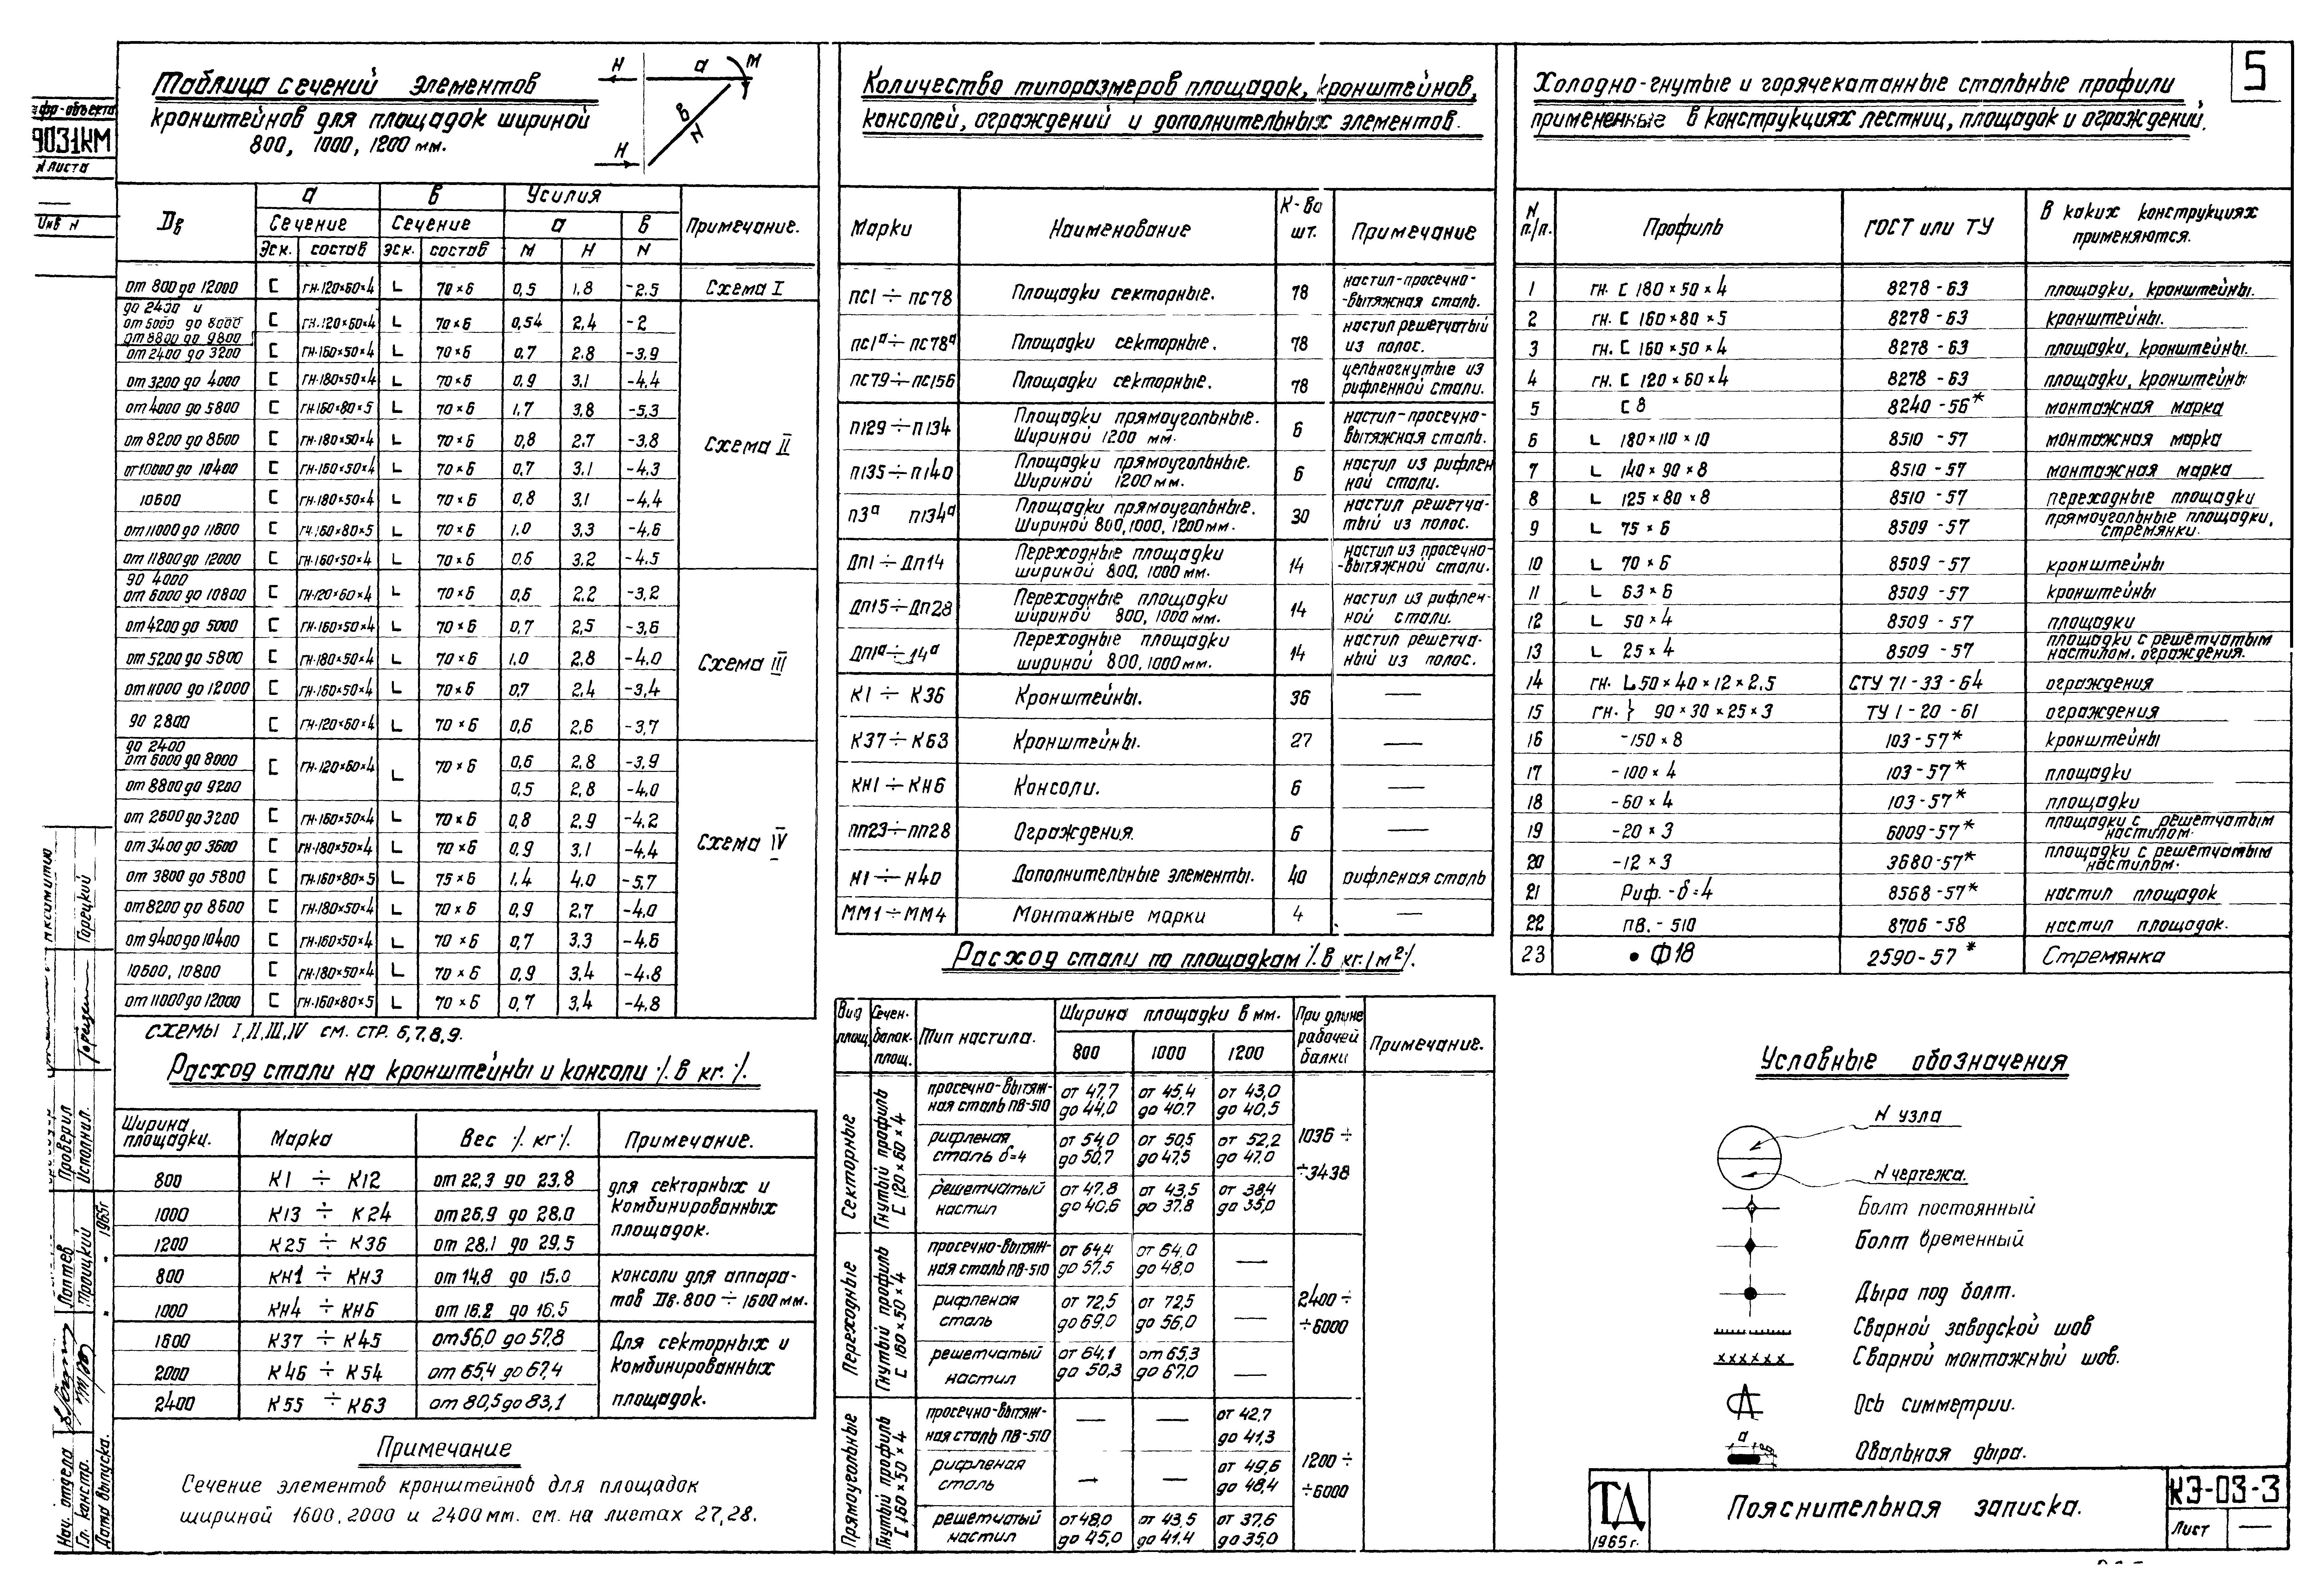 5
Таблица сечений элементов
кронштейнов для площадок шириной
800, 1000, 1200 мм.
Н а М
в N
Н
Dв а в Усилия Примечание.
Сечение Сечение а в
Эск. состав Эск. состав М Н N
от 800 до 12000 С гн.120×60×4 L 70×6 0,5 1,8 -2.5 Схема I
до 2430 и
от 5000 до 8000 С гн.120×60×4 L 70×6 0,54 2,4 -2
от 8800 до 9800
от 2400 до 3200 С гн.160×50×4 L 70×6 0,7 2.8 -3,9
от 3200 до 4000 С гн.180×50×4 L 70×6 0,9 3,1 -4,4
от 4000 до 5800 С гн.160×80×5 L 70×6 1,7 3,8 -5,3
от 8200 до 8600 С гн.180×50×4 L 70×6 0,8 2.7 -3,8 Схема II
от 10000 до 10400 С гн.160×50×4 L 70×6 0,7 3.1 -4.3
10600 С гн.180×50×4 L 70×6 0,8 3,1 -4,4
от 11000 до 11600 С гн.160×80×5 L 70×6 1.0 3,3 -4,6
от 11800 до 12000 С гн.160×50×4 L 70×6 0,6 3.2 -4.5
до 4000
от 6000 до 10800 С гн.120×60×4 L 70×6 0,6 2.2 -3,2
от 4200 до 5000 С гн.160×50×4 L 70×6 0,7 2,5 -3,6
от 5200 до 5800 С гн.180×50×4 L 70×6 1,0 2,8 -4,0 Схема III
от 11000 до 12000 С гн.160×50×4 L 70×6 0,7 2,4 -3,4
до 2800 С гн.120×60×4 L 70×6 0,6 2,6 -3,7
до 2400
от 6000 до 8000 С гн.120×60×4 L 70×6 0,6 2,8 -3,9
от 8800 до 9200 0,5 2,8 -4,0
от 2600 до 3200 С гн.160×50×4 L 70×6 0,8 2,9 -4,2
от 3400 до 3600 С гн.180×50×4 L 70×6 0,9 3,1 -4,4 Схема IV
от 3800 до 5800 С гн.160×80×5 L 75×6 1,4 4,0 -5,7
от 8200 до 8600 С гн.180×50×4 L 70×6 0,9 2,7 -4,0
от 9400 до 10400 С гн.160×50×4 L 70×6 0,7 3.3 -4,6
10600, 10800 С гн.180×50×4 L 70×6 0,9 3,4 -4,8
от 11000 до 12000 С гн.160×80×5 L 70×6 0,7 3,4 -4,8
Схемы I, II, III, IV см. стр. 6, 7, 8, 9.
Расход стали на кронштейны и консоли ·/. в кг. ·/.
Ширина площадки. Марка Вес ·/. кг ·/. Примечание.
800 К1 ÷ К12 от 22,3 до 23.8 для секторных и
1000 К13 ÷ К24 от 26,9 до 28.0 комбинированных
1200 К25 ÷ К36 от 28.1 до 29.5 площадок.
800 КН1 ÷ КН3 от 14,8 до 15.0 консоли для аппара-
1000 КН4 ÷ КН6 от 16.2 до 16.5 тов Дв. 800 ÷ 1600 мм.
1600 К37 ÷ К45 от 56,0 до 57,8 Для секторных и
2000 К46 ÷ К54 от 65,4 до 67,4 комбинированных
2400 К55 ÷ К63 от 80,5 до 83,1 площадок.
Примечание
Сечение элементов кронштейнов для площадок
шириной 1600, 2000 и 2400 мм. см. на листах 27, 28.
Количество типоразмеров площадок, кронштейнов,
консолей, ограждений и дополнительных элементов.
Марки Наименование К-во шт. Примечание
ПС1 ÷ ПС78 Площадки секторные. 78 настил-просечно-
-вытяжная сталь.
ПС1а ÷ ПС78а Площадки секторные. 78 настил решетчатый
из полос.
ПС79 ÷ ПС156 Площадки секторные. 78 цельногнутые из
рифленной стали.
П129 ÷ П134 Площадки прямоугольные. 6 настил-просечно-
Шириной 1200 мм. вытяжная сталь.
П135 ÷ П140 Площадки прямоугольные. 6 настил из рифлен
Шириной 1200 мм. ной стали.
П3а П134а Площадки прямоугольные. 30 настил решетча-
Шириной 800, 1000, 1200 мм. тый из полос.
ДП1 ÷ ДП14 Переходные площадки 14 настил из просечно-
шириной 800, 1000 мм. -вытяжной стали.
ДП15 ÷ ДП28 Переходные площадки 14 настил из рифлен-
шириной 800, 1000 мм. ной стали.
ДП1а ÷ 14а Переходные площадки 14 настил решетча-
шириной 800, 1000 мм. ный из полос.
К1 ÷ К36 Кронштейны. 36 —
К37 ÷ К63 Кронштейны. 27 —
КН1 ÷ КН6 Консоли. 6 —
ПП23 ÷ ПП28 Ограждения. 6 —
Н1 ÷ Н40 Дополнительные элементы. 40 рифленая сталь
ММ1 ÷ ММ4 Монтажные марки 4 —
Расход стали по площадкам ·/. в кг./м² ·/.
Вид площ. Сечен. балок. площ. Тип настила. Ширина площадки в мм. При длине рабочей балки Примечание.
800 1000 1200
Секторные Гнутый профиль С 120×60×4
просечно-вытяж- от 47,7 от 45,4 от 43,0
ная сталь ПВ-510 до 44,0 до 40.7 до 40,5
рифленая от 54.0 от 50,5 от 52,2 1036 ÷
сталь δ=4 до 50,7 до 47,5 до 47.0 ÷3438
решетчатый от 47.8 от 43,5 от 38,4
настил до 40,6 до 37.8 до 35,0
Переходные Гнутый профиль С 180×50×4
просечно-вытяж- от 64,4 от 64.0 —
ная сталь ПВ-510 до 57.5 до 48,0
рифленая от 72,5 от 72,5 — 2400 ÷
сталь до 69.0 до 56,0 ÷6000
решетчатый от 64,1 от 65,3 —
настил до 50,3 до 67,0
Прямоугольные Гнутый профиль С 160×50×4
просечно-вытяж- — — от 42.7
ная сталь ПВ-510 до 41,3
рифленая — — от 49,6 1200 ÷
сталь до 48,4 ÷6000
решетчатый от 48,0 от 43,5 от 37,6
настил до 45,0 до 41.4 до 35,0
Холодно-гнутые и горячекатанные стальные профили
примененные в конструкциях лестниц, площадок и ограждений.
N п./п. Профиль ГОСТ или ТУ В каких конструкциях применяются.
1 гн. С 180×50×4 8278-63 площадки, кронштейны.
2 гн. С 160×80×5 8278-63 кронштейны.
3 гн. С 160×50×4 8278-63 площадки, кронштейны.
4 гн. С 120×60×4 8278-63 площадки, кронштейны
5 С 8 8240-56* монтажная марка
6 L 180×110×10 8510-57 монтажная марка
7 L 140×90×8 8510-57 монтажная марка
8 L 125×80×8 8510-57 переходные площадки
9 L 75×6 8509-57 прямоугольные площадки, стремянки.
10 L 70×6 8509-57 кронштейны
11 L 63×6 8509-57 кронштейны
12 L 50×4 8509-57 площадки
13 L 25×4 8509-57 площадки с решетчатым настилом, ограждения.
14 гн. L 50×40×12×2.5 СТУ 71-33-64 ограждения
15 гн. } 90×30×25×3 ТУ 1-20-61 ограждения
16 -150×8 103-57* кронштейны
17 -100×4 103-57* площадки
18 -60×4 103-57* площадки
19 -20×3 6009-57* площадки с решетчатым настилом.
20 -12×3 3680-57* площадки с решетчатым настилом.
21 Риф. -δ=4 8568-57* настил площадок
22 ПВ.-510 8706-58 настил площадок.
23 • Ф18 2590-57* Стремянка
Условные обозначения
N узла
N чертежа.
Болт постоянный
Болт временный
Дыра под болт.
Сварной заводской шов
Сварной монтажный шов.
Ось симметрии.
Овальная дыра.
ТД
1965 г.
Пояснительная записка.
КЭ-03-3
Лист —
9031КМ
N листа
Инв N
Нач. отдела Лаптев
Гл. констр. Троицкий
Дата выпуска. " " 1965г
Проверил
Исполнил. Горецкий